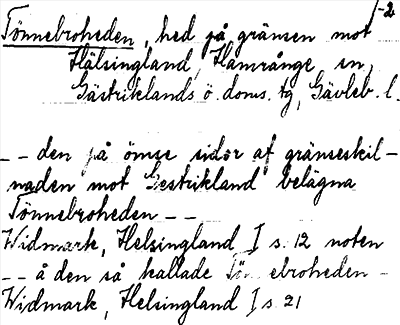 1-2
Tönnebroheden, hed på gränsen mot
Hälsingland, Hamrånge sn,
Gästriklands ö. doms. tg, Gävleb. l.
-- den på ömse sidor af gränseskil-
naden mot Gestrikland belägna
Tönnebroheden --
Widmark, Helsingland I s. 12 noten
-- å den så kallade Tön ebroheden -
Widmark, Helsingland I s. 21